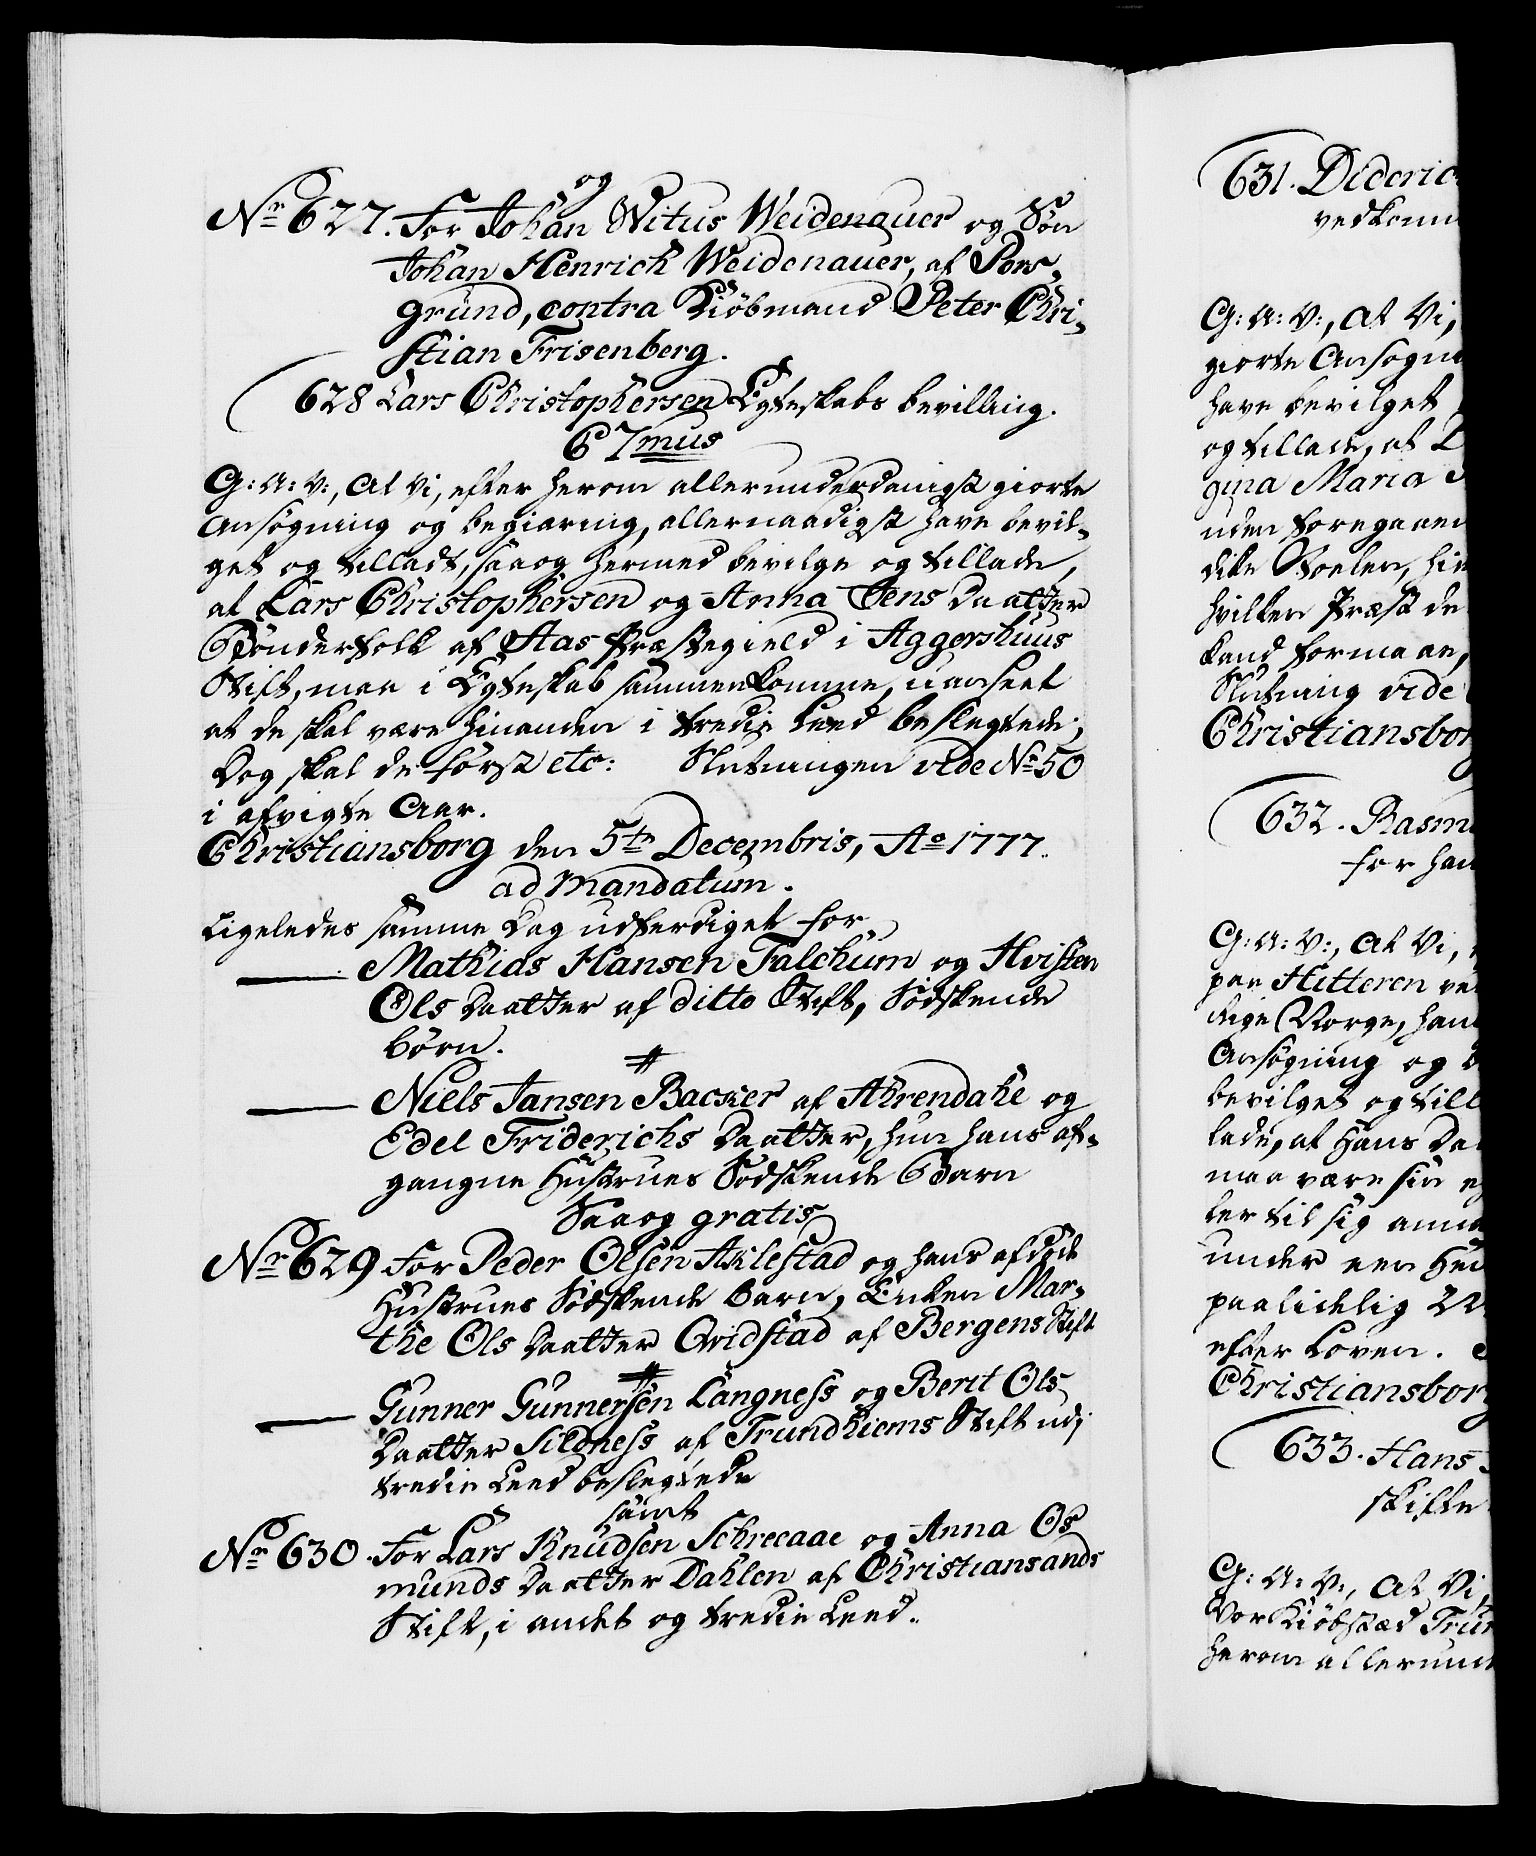 og
No 627. For Johan Witus Weidenauer og Søn
Johan Henrich Weidenauer, af Pors-
grund, contra Kiöbmand Peter Chri-
stian Frisenberg.
628 Lars Christophersen Egteskabs bevilling.
C 7mus
G: A: V:, at Vi, efter herom allerunderdanigst giorte
Ansøgning og begiæring, allernaadigst have bevil-
get og tilladt, saa og hermed bevilge og tillade,
at Lars Christophersen og Anna Jens Daatter
Bønderfolk af Aas Præstegield i Aggershuus
Stift, maa i Egteskab sammenkomme, uanseet
at de skal være hinanden i tredie Leed beslegtede;
Dog skal de først etc: Slutningen vide No 50
i afvigte Aar.
Christiansborg den 5te Decembris, Ao 1777.
ad Mandatum.
Ligeledes samme Dag udferdiget for
— Mathias Hansen Falchum og Kristen
Ols Daatter af ditto Stift, Sødskende
Børn.
— Niels Jansen Backer af Ahrendahl og
Edel Friderichs Daatter, hun hans af-
gangne Hustrues Sødskende Barn
Saa og gratis
No 629 For Peder Olsen Aklestad og hans afdøde
Hustrues Sødskende Barn, Enken Mar-
the Ols Daatter Qvidstad af Bergens Stift
— Gunner Gunnersen Langness og Berit Ols
Daatter Sildness af Trundhiems Stift udj
tredie Leed beslegtede
samt
No 630. For Lars Knudsen Schreeaae og Anna Os
munds Daatter Dahlen af Christiansands
Stift, i andet og tredie Leed.
631. Dideric
vedkomm
G: A: V:, at Vi,
giorte Ansøgn
have bevilget
og tillade, at
gina Maria
uden foregaaen
ditte Troelov, hi
hvilken Præst de
kand formaae,
Slutning vide
Christiansbor
632. Rasm
for han
G: A: V:, at Vi,
paa Hitteren
Rige Norge, han
Ansøgning og
bevilget og till
lade, at Hans Da
maa være sin
ler til sig anna
under een
paalidelig
efter Loven.
Christiansbor
633. Hans
skifte
G: A: V:, at Vi,
Vor Kiøbstæd Trun
herom allerund